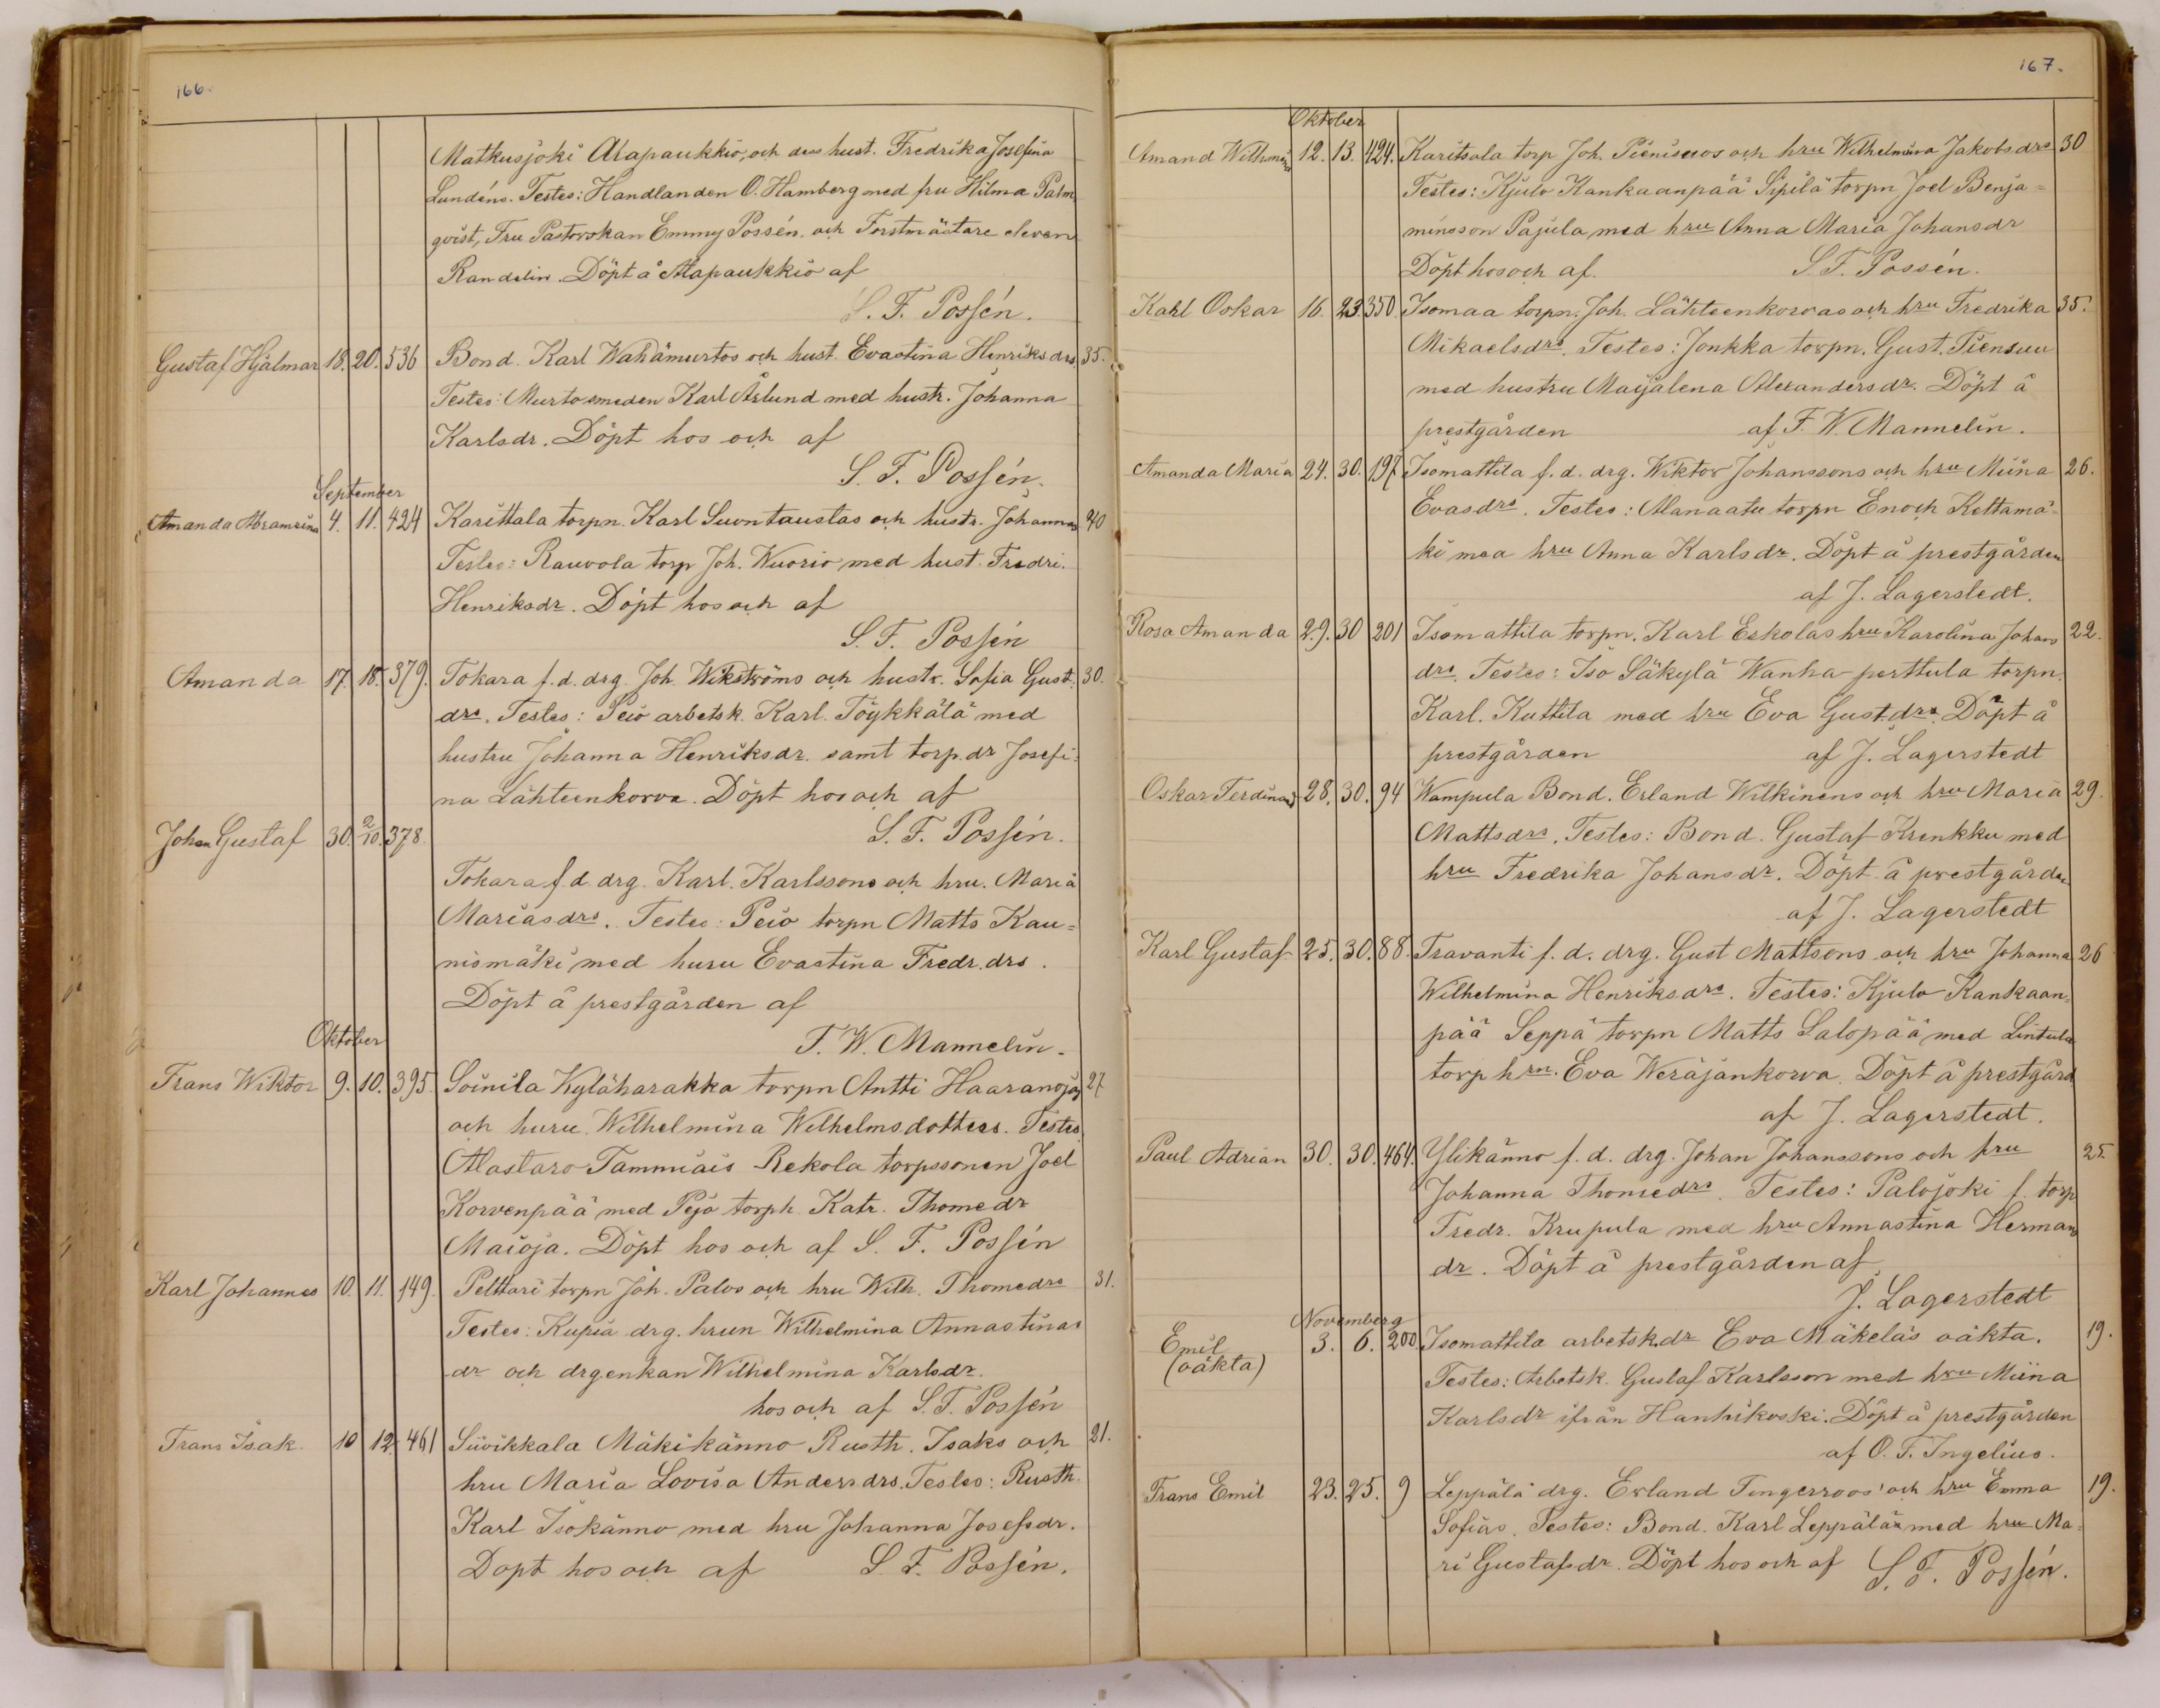 166.
Matkusjoki Alapaukkio, och dess hust. Fredrika Josefina
Lundéns. Testes: Handlanden O. Hamberg med fru Hilma Palm
qvist, Fru Pastorskan Emmy Possén och Forstmästare eleven
Randelin. Döpt å Alapaukkio af
S. F. Possén.
Gustaf Hjalmar 18. 20. 536 Bond. Karl Wahämurtos och hust. Evastina Henriksdrs. 35.
Testes: Murto smeden Karl Åslund med hustr. Johanna
Karlsdr. Döpt hos och af
S. F. Possén.
September
Amanda Abramsina 4. 11. 424 Karittala torpn. Karl Suontaustas och hustr. Johannas 40
Testes: Rauvola torp Joh. Wuorio med hust. Fredri.
Henriksdr. Döpt hos och af
S. F. Possén
Amanda 17. 18. 379. Tokara f. d. drg. Joh. Wikströms och hustr. Sofia Gust. 30.
drs. Testes: Peio arbetsk. Karl Töykkälä med
hustru Johanna Henriksdr. samt torp.dr Josefi-
na Lähteenkorva. Döpt hos och af
S. F. Possén.
Johan Gustaf 30. 2/10. 378.
Tokara f. d. drg. Karl. Karlssons och hru. Maria
Mariasdrs. Testes: Peio torpn Matts Kau=
nismäki med huru Evastina Fredr.drs.
Döpt å prestgården af
F. W. Mannelin.
Oktober
Frans Wiktor 9. 10. 395. Soinila Kyläharakka torpn Antti Haaranojas 27
och huru Wilhelmina Wilhelmsdotters. Testes
Alastaro Tammiais Rekola torpssonen Joel
Korvenpää med Pejo torph. Katr. Thomedr
Maioja. Döpt hos och af S. F. Possén
Karl Johannes 10. 11. 149. Pelttari torpn Joh. Palos och hru Wilh. Thomedrs 31.
Testes: Kupia drg. hrun Wilhelmina Annastinas
dr och drgenkan Wilhelmina Karlsdr.
hos och af S. F. Possén
Frans Isak. 10 12. 461 Siivikkala Mäkikänno Rusth. Isaks och 21.
hru Maria Lovisa Andersdrs. Testes: Rusth.
Karl Isokänno med hru Johanna Josefsdr.
Dopt hos och af S. F. Possén.
167.
Oktober
Amand Wilhmina 12. 13. 424. Karitsala torp Joh. Pieniscuos och hru Wilhelmina Jakobsdrs 30
Testes: Kjulo Kankaanpää Sipilä torpn Joel Benja=
minsson Pajula med hru Anna Maria Johansdr
Döpt hos och af. S. F. Possén.
Karl Oskar 16. 23. 350. Isomaa torpn. Joh. Lähteenkorvas och hru Fredrika 35.
Mikaelsdrs. Testes: Jonkka torpn. Gust. Tiensuu
med hustru Maijalena Alexandersdr. Döpt å
prestgården af F. W. Mannelin.
Amanda Maria 24. 30. 197 Isomattila f. d. drg. Wiktor Johanssons och hru Miina 26.
Evasdrs. Testes: Manaatu torpn Enoch Kettamä-
ki med hru Anna Karlsdr. Döpt å prestgården
af J. Lagerstedt.
Rosa Amanda 29. 30 201 Isomattila torpn. Karl Eskolas hru Karolina Johans 22.
drs. Testes: Iso Säkylä Wanha-perttula torpn.
Karl. Kuttila med hru Eva Gust.drs. Döpt å
prestgården af J. Lagerstedt
Oskar Ferdinand 28. 30. 94 Wampula Bond. Erland Wilkinens och hru Maria 29.
Mattsdrs. Testes: Bond. Gustaf Krenkku med
hru Fredrika Johansdr. Döpt å prestgården
af J. Lagerstedt
Karl Gustaf 25. 30. 88. Travanti f. d. drg. Gust Mattsons och hru Johanna 26
Wilhelmina Henriksdrs. Testes: Kjulo Kankaan-
pää Seppä torpn Matts Salopää med Lintula
torp hrn. Eva Weräjänkorva. Döpt å prestgård.
af J. Lagerstedt.
Paul Adrian 30. 30. 464. Ylikänno f. d. drg. Johan Johanssons och fru 25.
Johanna Thomedrs. Testes: Palojoki f. torp
Fredr. Krupula med hru Annastina Hermans
dr. Döpt å prestgården af
J. Lagerstedt
November
Emil 3. 6. 200. Isomattila arbetsk.dr Eva Mäkeläs oäkta. 19.
(oäkta)
Testes: Arbetsk. Gustaf Karlsson med hru Miina
Karlsdr ifrån Hanhikoski. Döpt å prestgården
af O. F. Ingelius.
Frans Emil 23. 25. 9 Leppälä drg. Erland Tingerroos' och hru Emma 19.
Sofias. Testes: Bond. Karl Leppälä med hru Ma-
ri Gustafsdr. Döpt hos och af S. F. Possén.